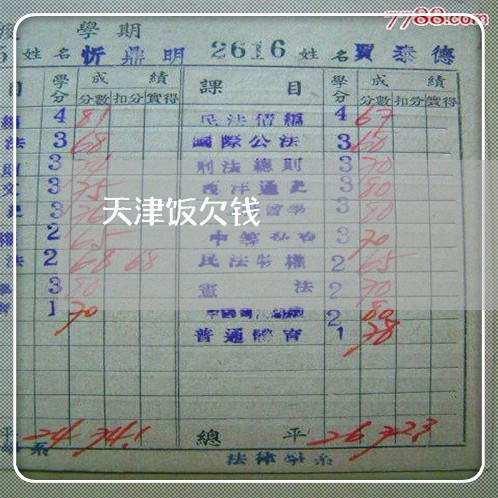 7788.com
學期
姓名 忻鼎明 2616 姓名 賈泰德
目 學分 成績 課目 學分 成績
分數 扣分 實得 分數 扣分 實得
4 81 民法債編 4 67
法 3 68 國際公法 3 60
3 刑法總則 3 70
3 75 西洋通史 3 80
3 3 80
天津饭欠钱
權 2 65 3 70
法 2 68 68 民法物權 2 65
3 80 憲法 2 70
1 70 2 80
普通體育 1 78
平 24 74.1 總平 26 72.3
系 法律學系